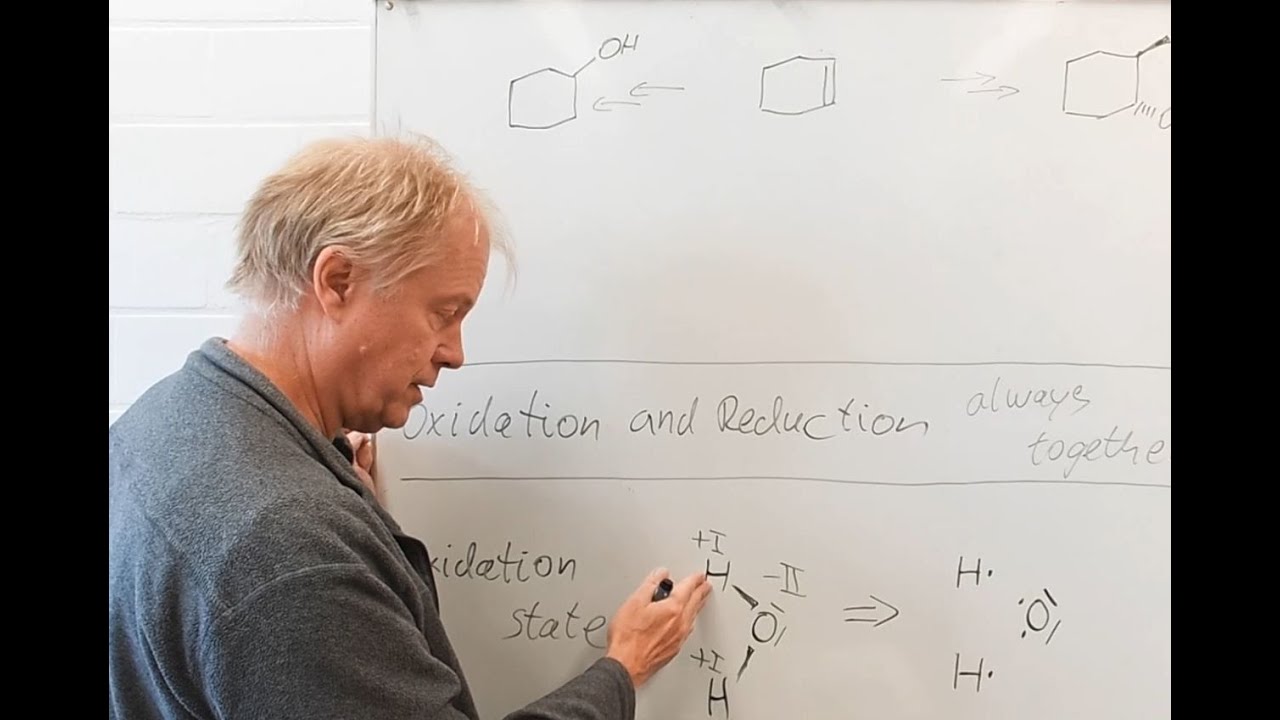 OH
Oxidation and Reduction always
together
Oxidation
state
+I
H
-II
O
+I
H
⇒
H·
O
H·